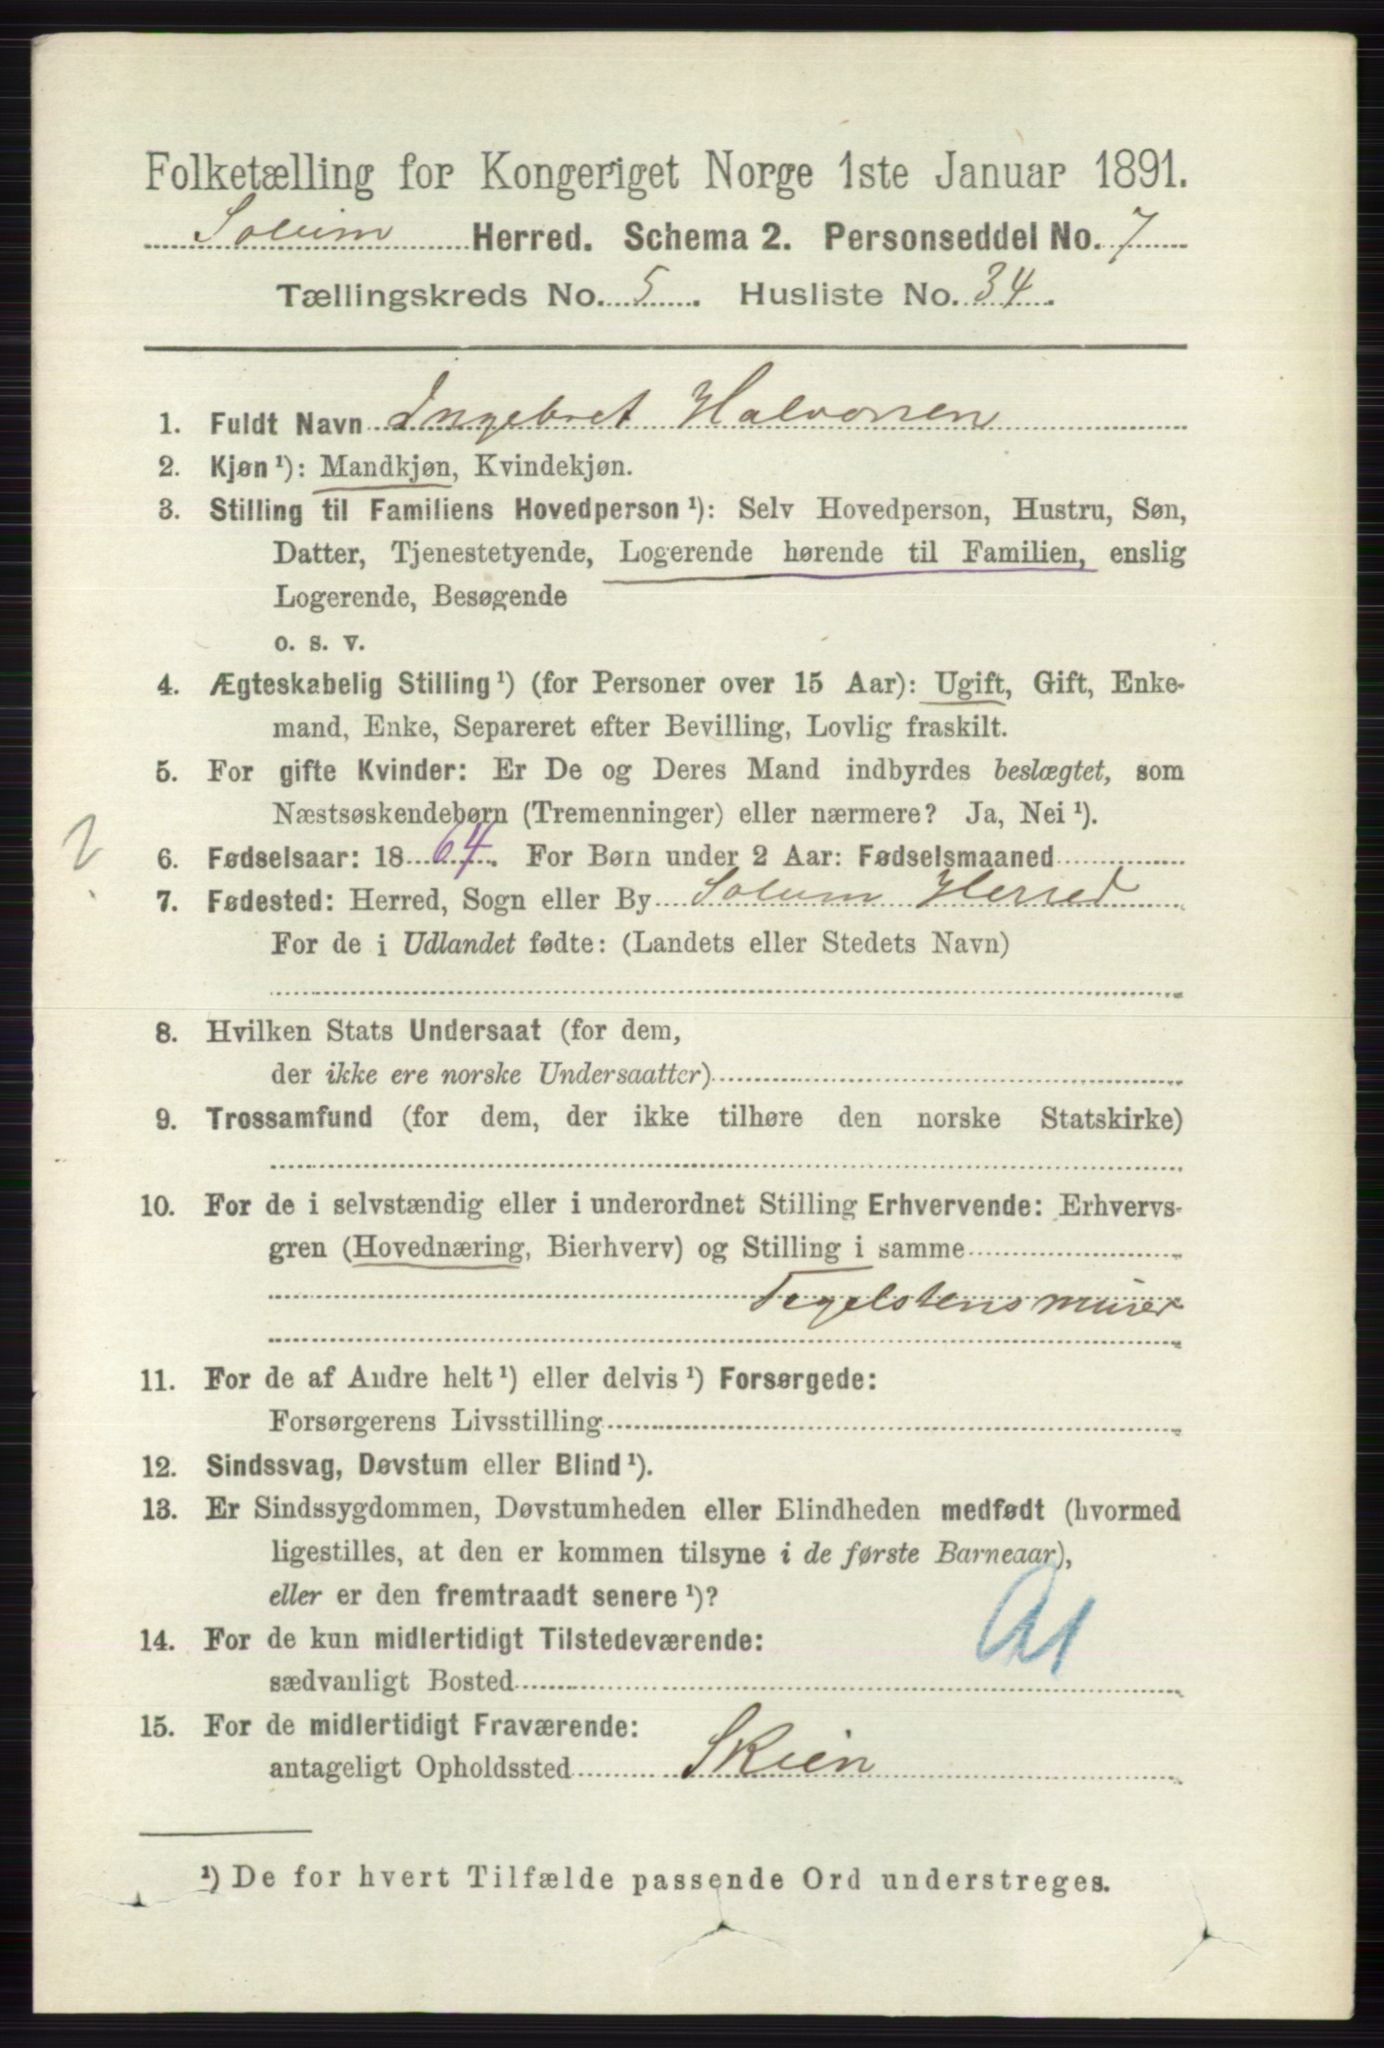 Folketælling for Kongeriget Norge 1ste Januar 1891.
Solum Herred. Schema 2. Personseddel No. 7
Tællingskreds No. 5. Husliste No. 34.
1. Fuldt Navn Ingebret Halvorsen
2. Kjøn ¹): Mandkjøn, Kvindekjøn.
3. Stilling til Familiens Hovedperson ¹): Selv Hovedperson, Hustru, Søn,
Datter, Tjenestetyende, Logerende hørende til Familien, enslig
Logerende, Besøgende
o. s. v.
4. Ægteskabelig Stilling ¹) (for Personer over 15 Aar): Ugift, Gift, Enke-
mand, Enke, Separeret efter Bevilling, Lovlig fraskilt.
5. For gifte Kvinder: Er De og Deres Mand indbyrdes beslægtet, som
Næstsøskendebørn (Tremenninger) eller nærmere? Ja, Nei ¹).
2
6. Fødselsaar: 1864. For Børn under 2 Aar: Fødselsmaaned
7. Fødested: Herred, Sogn eller By Solum Herred
For de i Udlandet fødte: (Landets eller Stedets Navn)
8. Hvilken Stats Undersaat (for dem,
der ikke ere norske Undersaatter)
9. Trossamfund (for dem, der ikke tilhøre den norske Statskirke)
10. For de i selvstændig eller i underordnet Stilling Erhvervende: Erhvervs-
gren (Hovednæring, Bierhverv) og Stilling i samme
Tegelstensmurer
11. For de af Andre helt ¹) eller delvis ¹) Forsørgede:
Forsørgerens Livsstilling
12. Sindssvag, Døvstum eller Blind ¹).
13. Er Sindssygdommen, Døvstumheden eller Blindheden medfødt (hvormed
ligestilles, at den er kommen tilsyne i de første Barneaar),
eller er den fremtraadt senere ¹)?
14. For de kun midlertidigt Tilstedeværende:
sædvanligt Bosted
15. For de midlertidigt Fraværende:
antageligt Opholdssted Skien
¹) De for hvert Tilfælde passende Ord understreges.